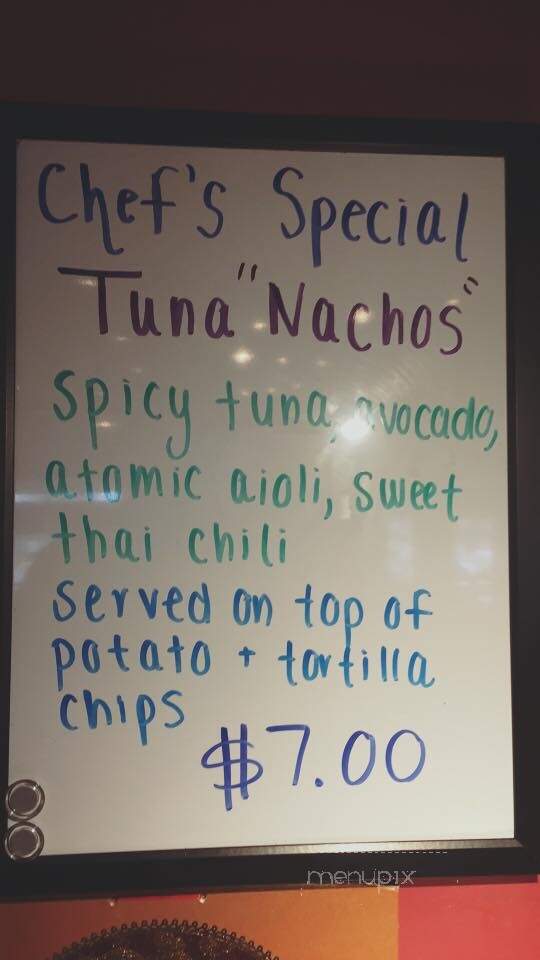 Chef's Special
Tuna "Nachos"
Spicy tuna, avocado,
atomic aioli, sweet
thai chili
Served on top of
potato + tortilla
chips
$7.00
menupix